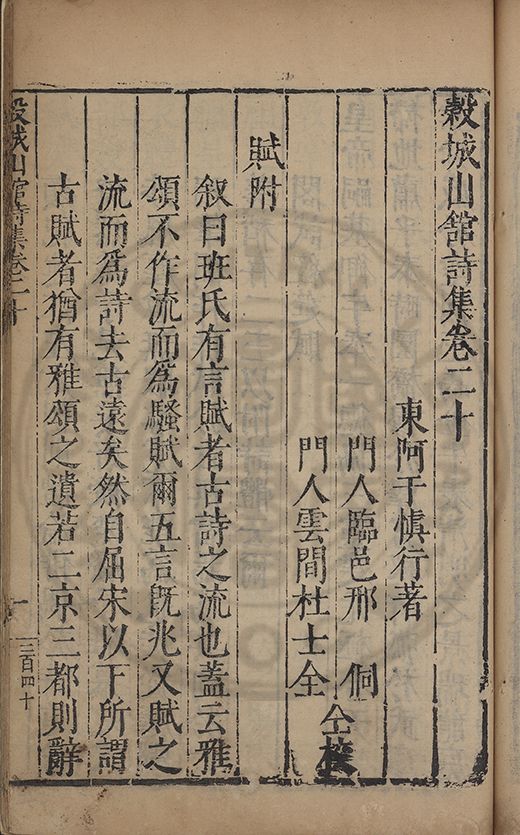 穀城山舘詩集卷二十
東阿于慎行著
門人臨邑邢侗
門人雲間杜士全
仝校
賦附
叙曰班氏有言賦者古詩之流也蓋云雅
頌不作流而爲騷賦爾五言旣兆又賦之
流而爲詩去古遠矣然自屈宋以下所謂
古賦者猶有雅頌之遺若二京三都則辭
穀城山舘詩集卷二十
一
三百四十